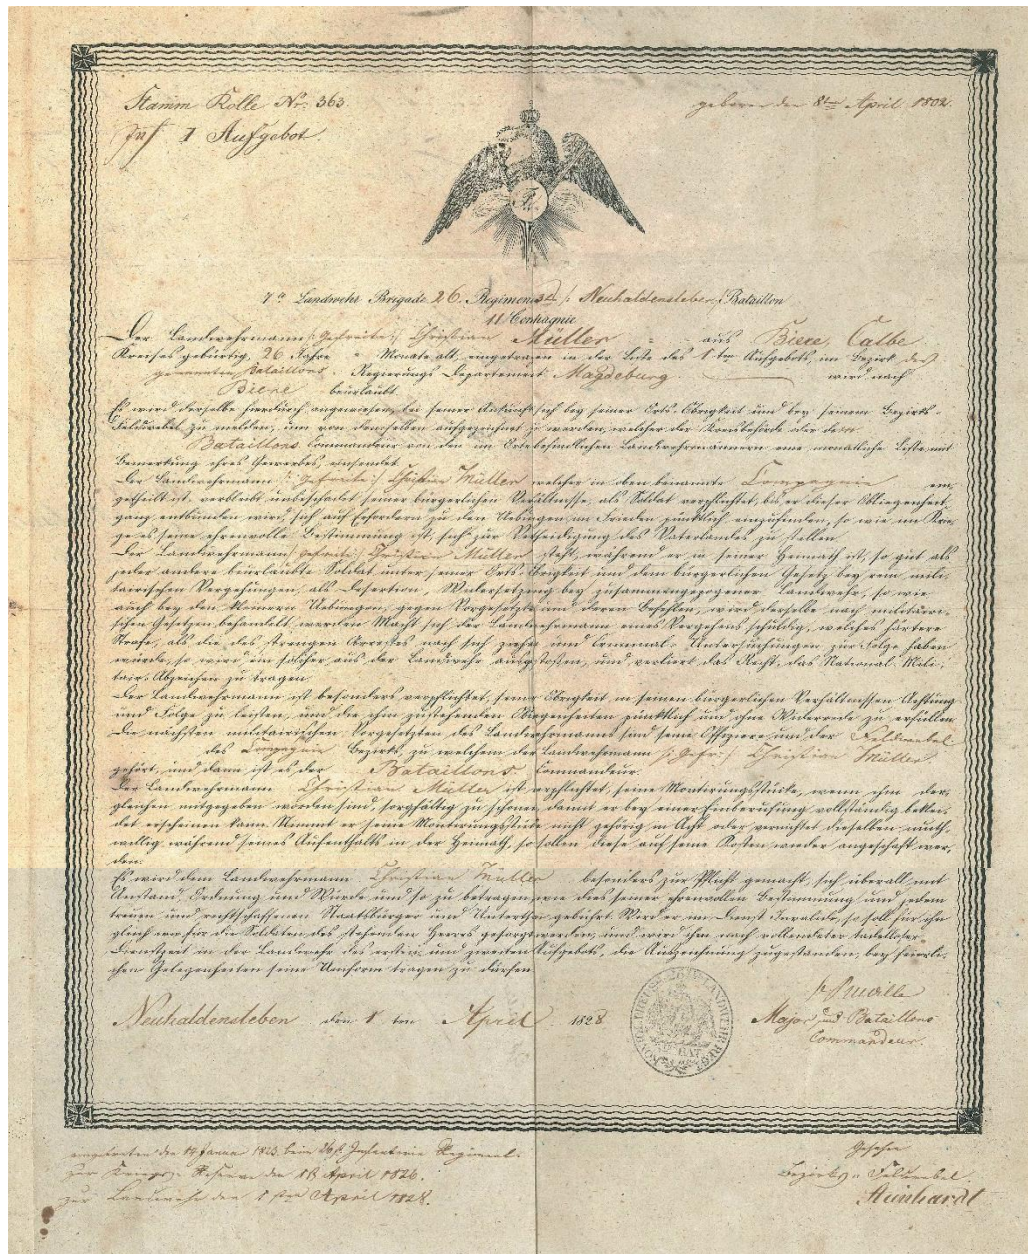 Stamm Rolle Nr: 363.
geboren den 8ten April 1802.
Inf 1 Aufgebot
7te Landwehr Brigade 26. Regiment 3tes /: Neuhaldensleber :/ Bataillon
11 Compagnie
Der Landwehrmann /: Gefreite :/ Christian Müller aus Biere, Calbe
Kreises gebürtig, 26 Jahre " Monate alt, eingetragen in der Liste des 1ten Aufgebots, im Bezirk des
genannten Bataillons, Regierungs Departement Magdeburg wird nach
Biere beurlaubt.
Es wird derselbe hierdurch angewiesen, bei seiner Ankunft sich bey seiner Orts-Obrigkeit und bey seinem Bezirks-
Feldwebel zu melden, um von denselben aufgezeichnet zu werden, welcher der Kreisbehörde oder dem
Bataillons Commandeur von den im Orte befindlichen Landwehrmännern eine monatliche Liste mit
Bemerkung ihres Gewerbes, einsendet.
Der Landwehrmann /: Gefreite :/ Christian Müller welcher in oben benannte Compagnie ein-
getheilt ist, verbleibt unbeschadet seiner bürgerlichen Verhältnisse, als Soldat verpflichtet, bis er dieser Obliegenheit
ganz entbunden wird, sich auf Erfordern zu den Uebungen im Frieden pünktlich einzufinden, so wie im Krie-
ge es seine ehrenvolle Bestimmung ist, sich zur Vertheidigung des Vaterlandes zu stellen.
Der Landwehrmann /: Gefreite :/ Christian Müller steht, während er in seiner Heimath ist, so gut als
jeder andere beurlaubte Soldat unter seiner Orts-Obrigkeit und dem bürgerlichen Gesetz bey rein mili-
tairischen Vergehungen, als Desertion, Widersetzung bey zusammengezogener Landwehr, so wie
auch bey den kleinern Uebungen, gegen Vorgesetzte und deren Befehlen, wird derselbe nach militairi-
schen Gesetzen behandelt werden. Macht sich der Landwehrmann eines Vergehens schuldig, welches härtere
Strafe, als die des strengen Arrestes nach sich ziehen und Criminal-Untersuchungen zur Folge haben
würde, so wird ein solcher aus der Landwehr ausgestoßen, und verliert das Recht, das National-Mili-
tair-Abzeichen zu tragen.
Der Landwehrmann ist besonders verpflichtet, seiner Obrigkeit in seinen bürgerlichen Verhältnissen Achtung
und Folge zu leisten, und die ihm zustehenden Obliegenheiten pünktlich und ohne Widerrede zu erfüllen.
Die nächsten militairischen Vorgesetzten des Landwehrmanns sind seine Offiziere und der Feldwebel
des Compagnie Bezirks, zu welchem der Landwehrmann /: Gefr: :/ Christian Müller
gehört, und dann ist es der Bataillons Commandeur.
Der Landwehrmann Christian Müller ist verpflichtet, seine Montirungsstücke, wenn ihm der-
gleichen mitgegeben worden sind, sorgfältig zu schonen, damit er bey einer Einberufung vollständig beklei-
det erscheinen kann. Nimmt er seine Montirungsstücke nicht gehörig in Acht oder vernichtet dieselben muth-
willig während seines Aufenthalts in der Heimath, so sollen diese auf seine Kosten wieder angeschaft wer-
den.
Es wird dem Landwehrmann Christian Müller besonders zur Pflicht gemacht, sich überall mit
Anstand, Ordnung und Würde und so zu betragen, wie dies seiner ehrenvollen Bestimmung und jedem
treuen und rechtschaffenen Staatsbürger und Unterthan gebührt. Wird er im Dienst Invalide, so soll für ihn
gleich wie für die Soldaten des stehenden Heeres gesorgt werden, und wird ihm nach vollendeter tadelloser
Dienstzeit in der Landwehr des ersten und zweiten Aufgebots, die Auszeichnung zugestanden, bey feierli-
chen Gelegenheiten seine Uniform tragen zu dürfen.
Neuhaldensleben den 1ten April 1828
Major und Bataillons
Commandeur.
LANDWEHR REGT
BAT
eingetreten den 19 Januar 1823 beim 26t Infanterie Regiment.
zur Kriegs-Reserve den 18 April 1826.
zur Landwehr den 1ten April 1828.
Gesehen
Bezirks-Feldwebel
Steinhardt